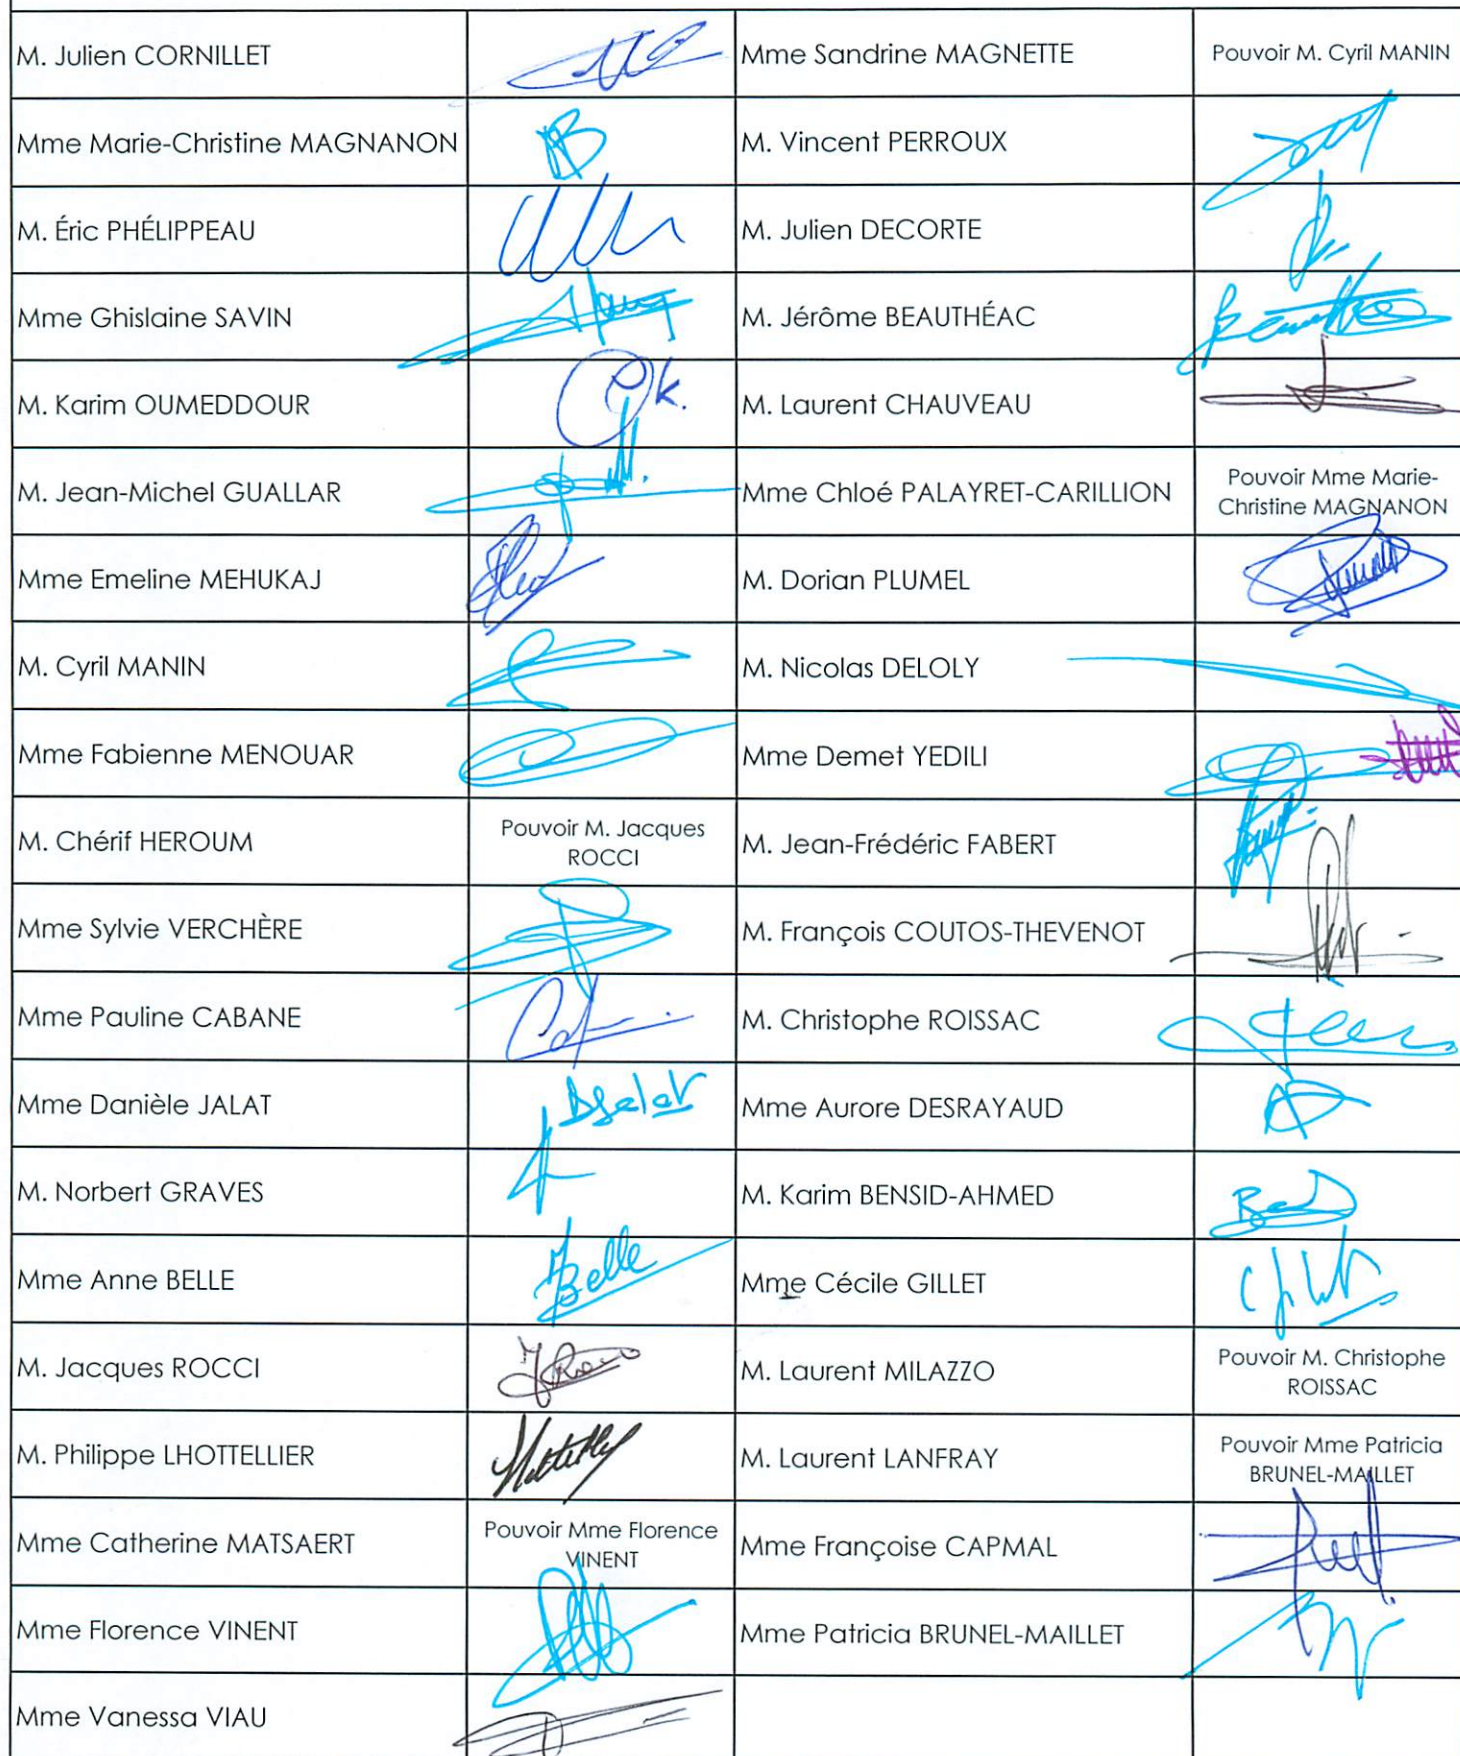 M. Julien CORNILLET
Mme Sandrine MAGNETTE
Pouvoir M. Cyril MANIN
Mme Marie-Christine MAGNANON
M. Vincent PERROUX
M. Éric PHÉLIPPEAU
M. Julien DECORTE
Mme Ghislaine SAVIN
M. Jérôme BEAUTHÉAC
M. Karim OUMEDDOUR
K.
M. Laurent CHAUVEAU
M. Jean-Michel GUALLAR
Mme Chloé PALAYRET-CARILLION
Pouvoir Mme Marie-
Christine MAGNANON
Mme Emeline MEHUKAJ
M. Dorian PLUMEL
M. Cyril MANIN
M. Nicolas DELOLY
Mme Fabienne MENOUAR
Mme Demet YEDILI
M. Chérif HEROUM
Pouvoir M. Jacques
ROCCI
M. Jean-Frédéric FABERT
Mme Sylvie VERCHÈRE
M. François COUTOS-THEVENOT
Mme Pauline CABANE
M. Christophe ROISSAC
Mme Danièle JALAT
DJalat
Mme Aurore DESRAYAUD
M. Norbert GRAVES
M. Karim BENSID-AHMED
Mme Anne BELLE
Belle
Mme Cécile GILLET
M. Jacques ROCCI
M. Laurent MILAZZO
Pouvoir M. Christophe
ROISSAC
M. Philippe LHOTTELLIER
M. Laurent LANFRAY
Pouvoir Mme Patricia
BRUNEL-MAILLET
Mme Catherine MATSAERT
Pouvoir Mme Florence
VINENT
Mme Françoise CAPMAL
Mme Florence VINENT
Mme Patricia BRUNEL-MAILLET
Mme Vanessa VIAU